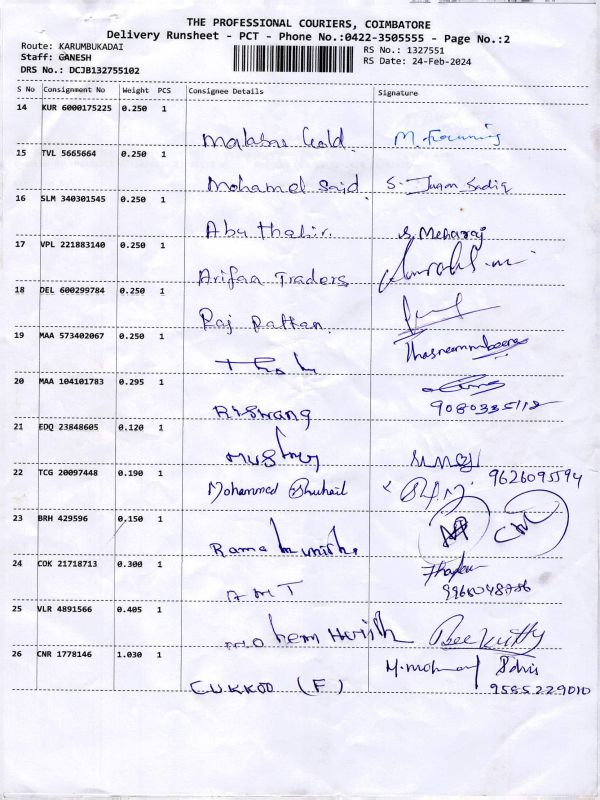 THE PROFESSIONAL COURIERS, COIMBATORE
Delivery Runsheet - PCT - Phone No.:0422-3505555 - Page No.:2
Route: KARUMBUKADAI
RS No.: 1327551
Staff: GANESH
RS Date: 24-Feb-2024
DRS No.: DCJB132755102
S No Consignment No Weight PCS Consignee Details Signature
14 KUR 6000175225 0.250 1
Malabar Gold.
15 TVL 5665664 0.250 1
Mohamed Said.
16 SLM 340301545 0.250 1
Abu thahir. S. Meharaj
17 VPL 221883140 0.250 1
Arifaa Traders
18 DEL 600299784 0.250 1
Raj Pattan.
19 MAA 573402067 0.250 1
20 MAA 104101783 0.295 1
Riswang 9080335118
21 EDQ 23848605 0.120 1
22 TCG 20097448 0.190 1
Mohammed Shuhail 9626095594
23 BRH 429596 0.150 1
Rama
24 COK 21718713 0.300 1
AMT
25 VLR 4891566 0.405 1
26 CNR 1778146 1.030 1
CUKKOO (F) 9585229010